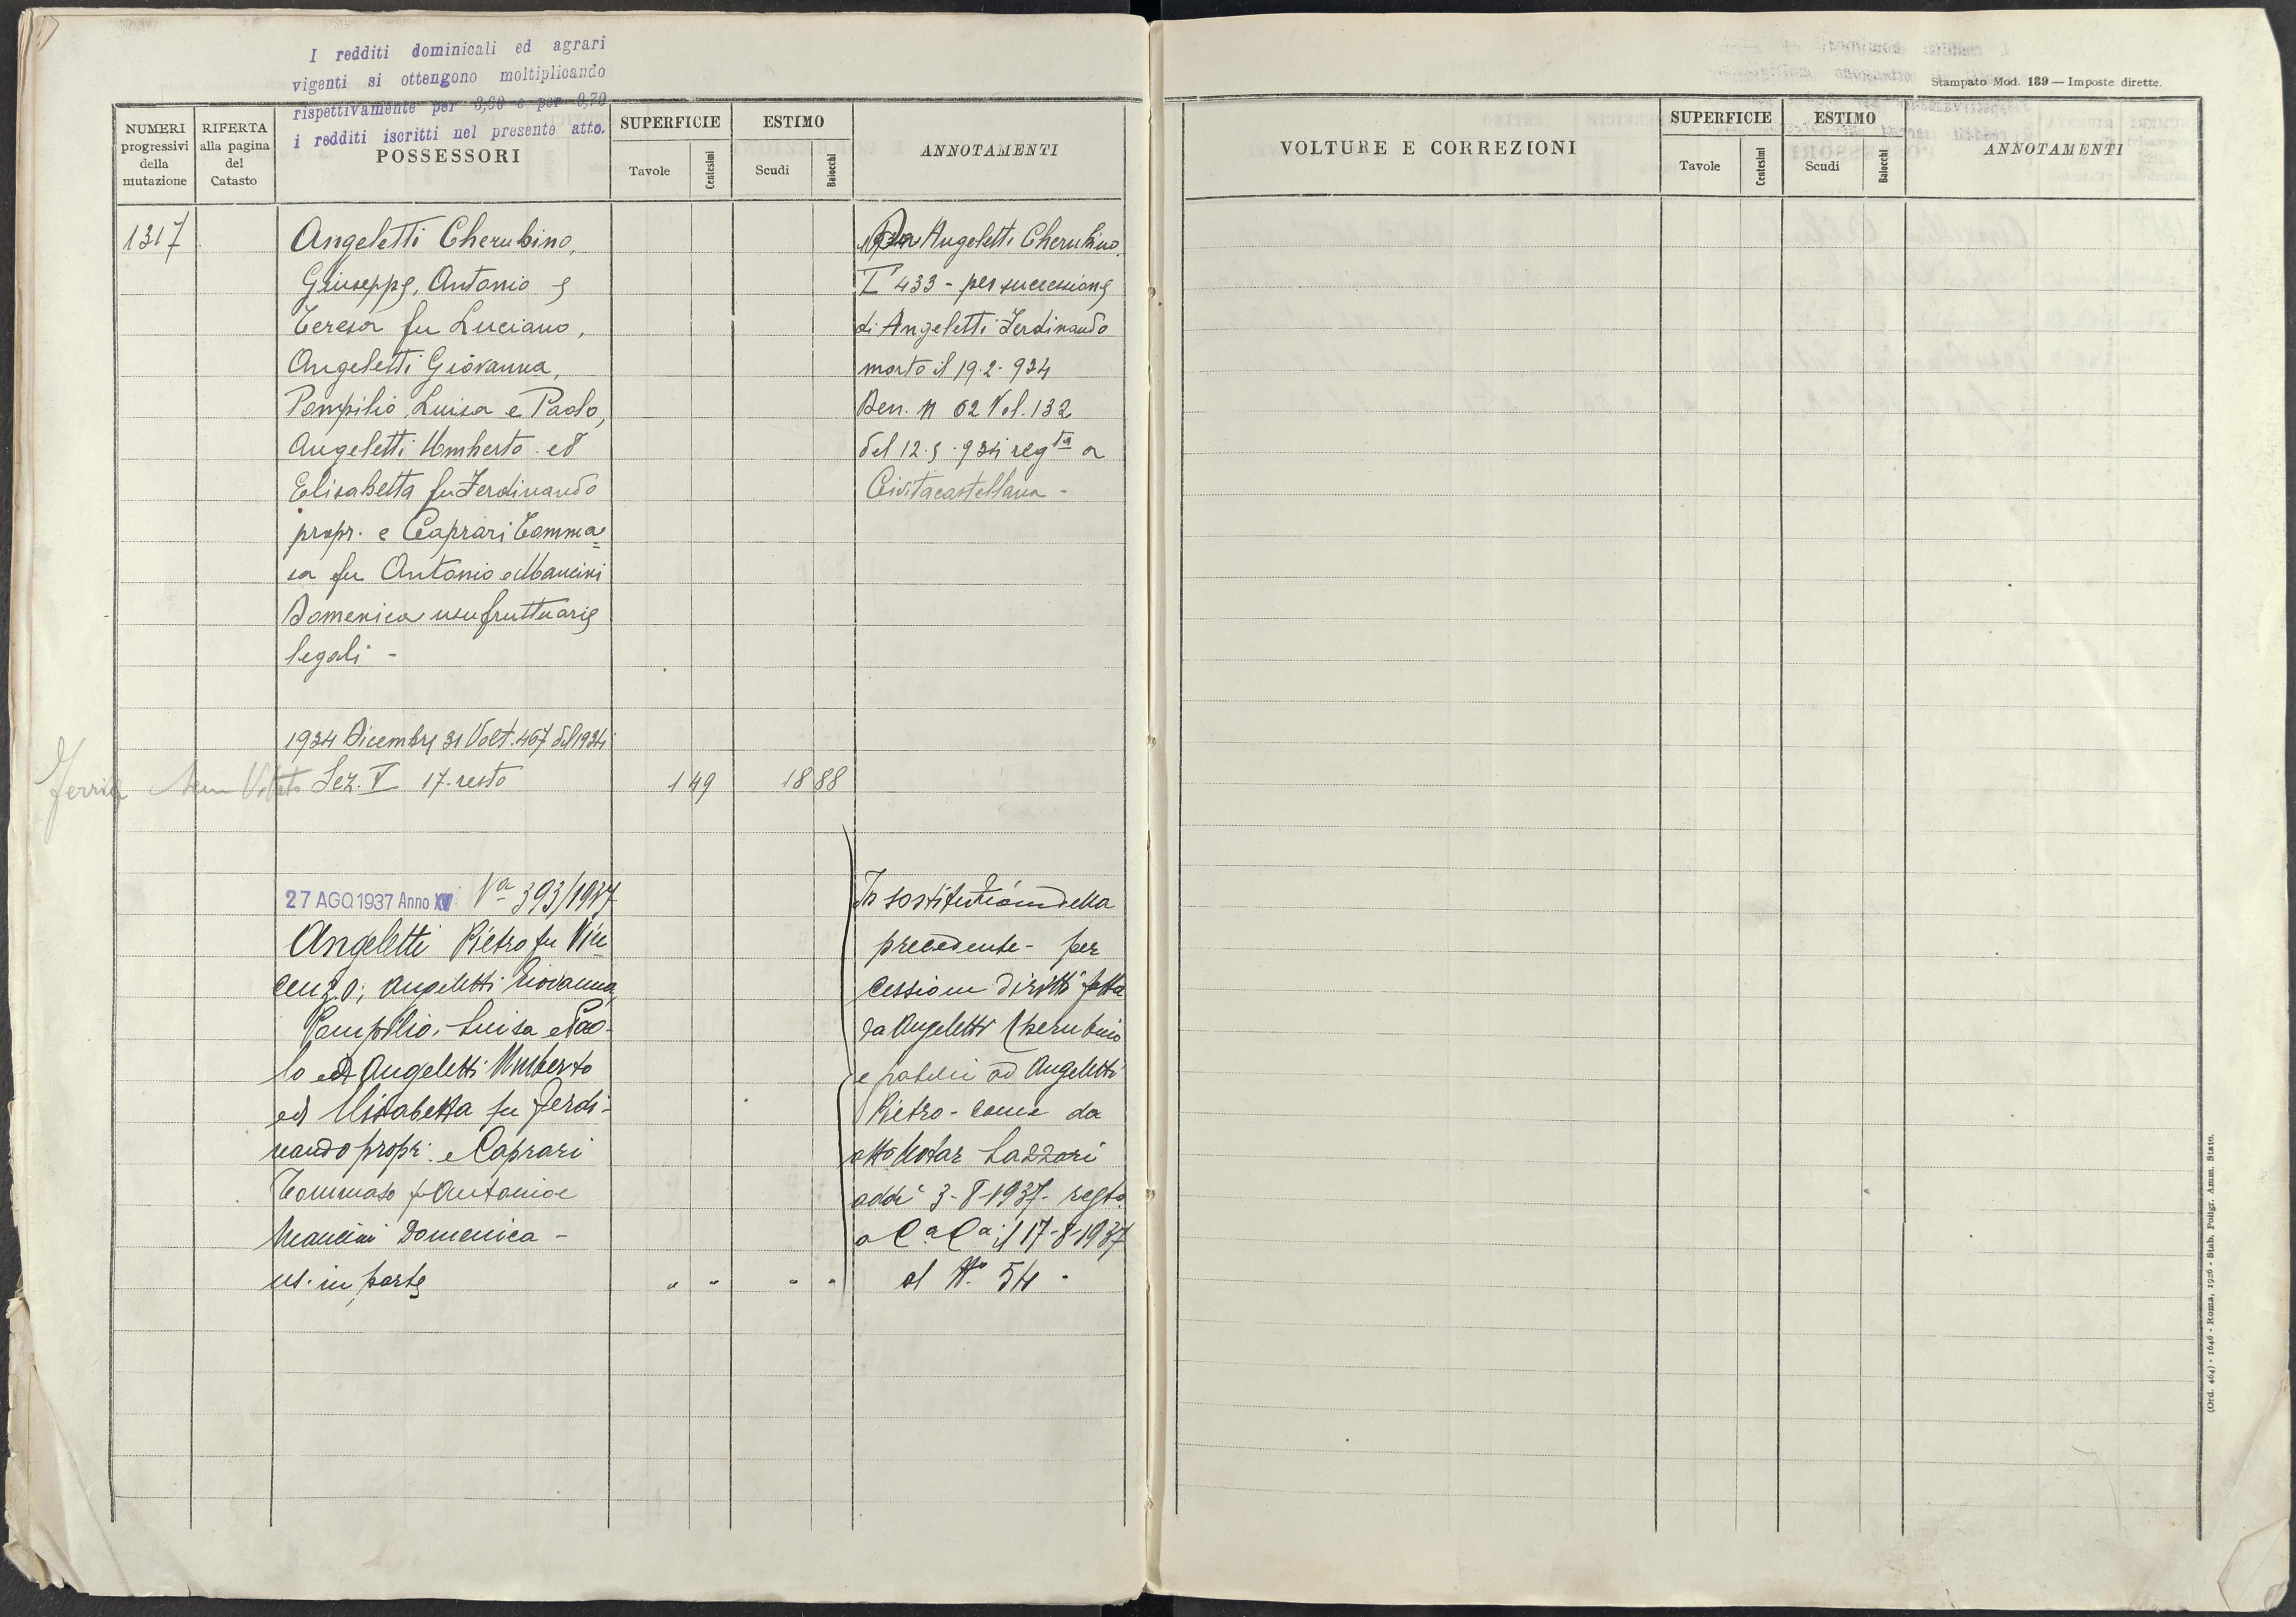 I redditi dominicali ed agrari
vigenti si ottengono moltiplicando
rispettivamente per 3,60 e per 0,70
i redditi iscritti nel presente atto.
NUMERI progressivi della mutazione
RIFERTA alla pagina del Catasto
POSSESSORI
SUPERFICIE
Tavole
Centesimi
ESTIMO
Scudi
Baiocchi
ANNOTAMENTI
1317
Angeletti Cherubino,
Giuseppe, Antonio e
Teresa fu Luciano,
Angeletti Giovanna,
Pompilio, Luisa e Paolo,
Angeletti Umberto ed
Elisabetta fu Ferdinando
propr. e Caprari Tomma=
sa fu Antonio e Mancini
Domenica usufruttuarie
legali -
Da Angeletti Cherubino
I 433 - per successione
di Angeletti Ferdinando
morto il 19.2.934
Den. N 62 Vol. 132
del 12.5.934 regta a
Civitacastellana -
1934 Dicembre 31 Volt. 467 del 1934
Sez. V 17. resto 1 49 18 88
27 AGO 1937 Anno XV Va 393/1937
Angeletti Pietro fu Vin=
cenzo; Angeletti Giovanna,
Pompilio, Luisa e Pao-
lo ed Angeletti Umberto
ed Elisabetta fu Ferdi-
nando propr. e Caprari
Tommaso fu Antonio e
Mancini Domenica -
us. in parte " " " "
In sostituzione della
precedente - per
cessione diritti fatta
da Angeletti Cherubino
e fratelli ad Angeletti
Pietro - come da
atto Notar Lazzari
addì 3-8-1937 - regto
a Ca Ca il 17-8-1937
al No. 54 -
Stampato Mod. 139 — Imposte dirette.
VOLTURE E CORREZIONI
SUPERFICIE
Tavole
Centesimi
ESTIMO
Scudi
Baiocchi
ANNOTAMENTI
(Ord. 464) - 1646 - Roma, 1926 - Stab. Poligr. Amm. Stato.